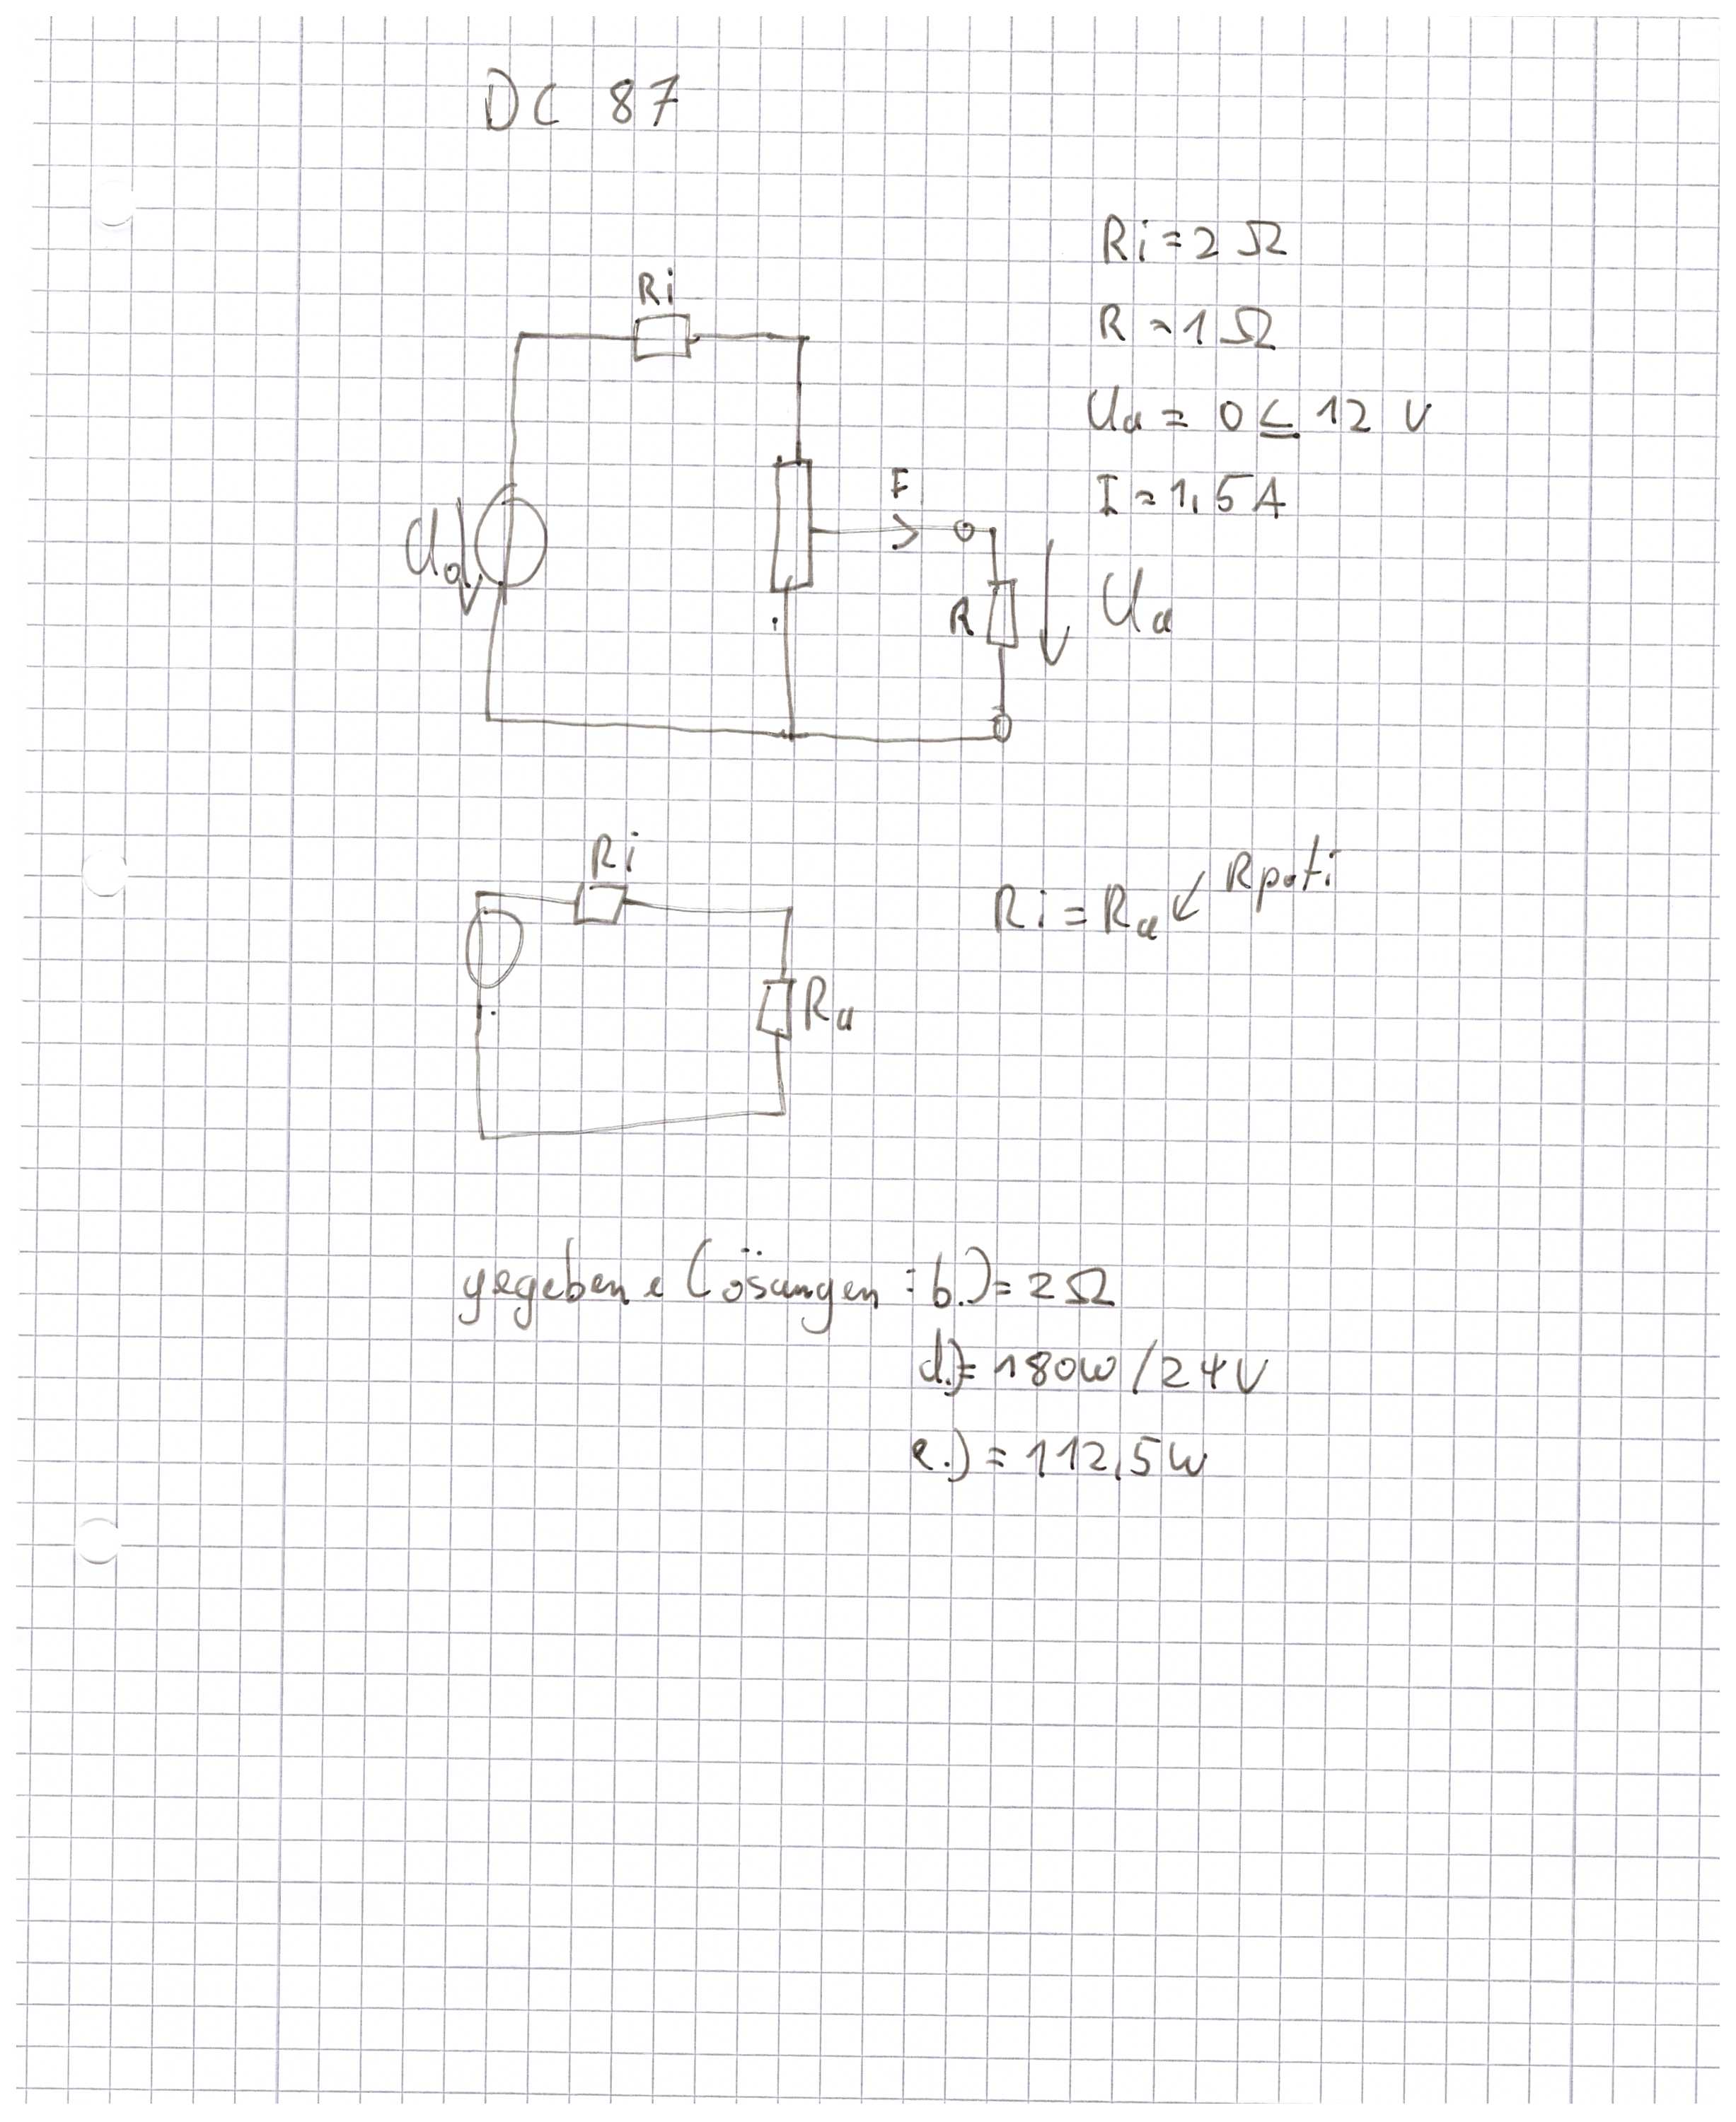 DC 87
Ri = 2 Ω
Ri
R = 1 Ω
Ua = 0 ≤ 12 V
I = 1,5 A
I
U0
R
Ua
Ri
Ri = Ra ↙ Rpoti
Ra
gegebene Lösungen : b.) = 2 Ω
d.) = 180W / 24V
e.) = 112,5W